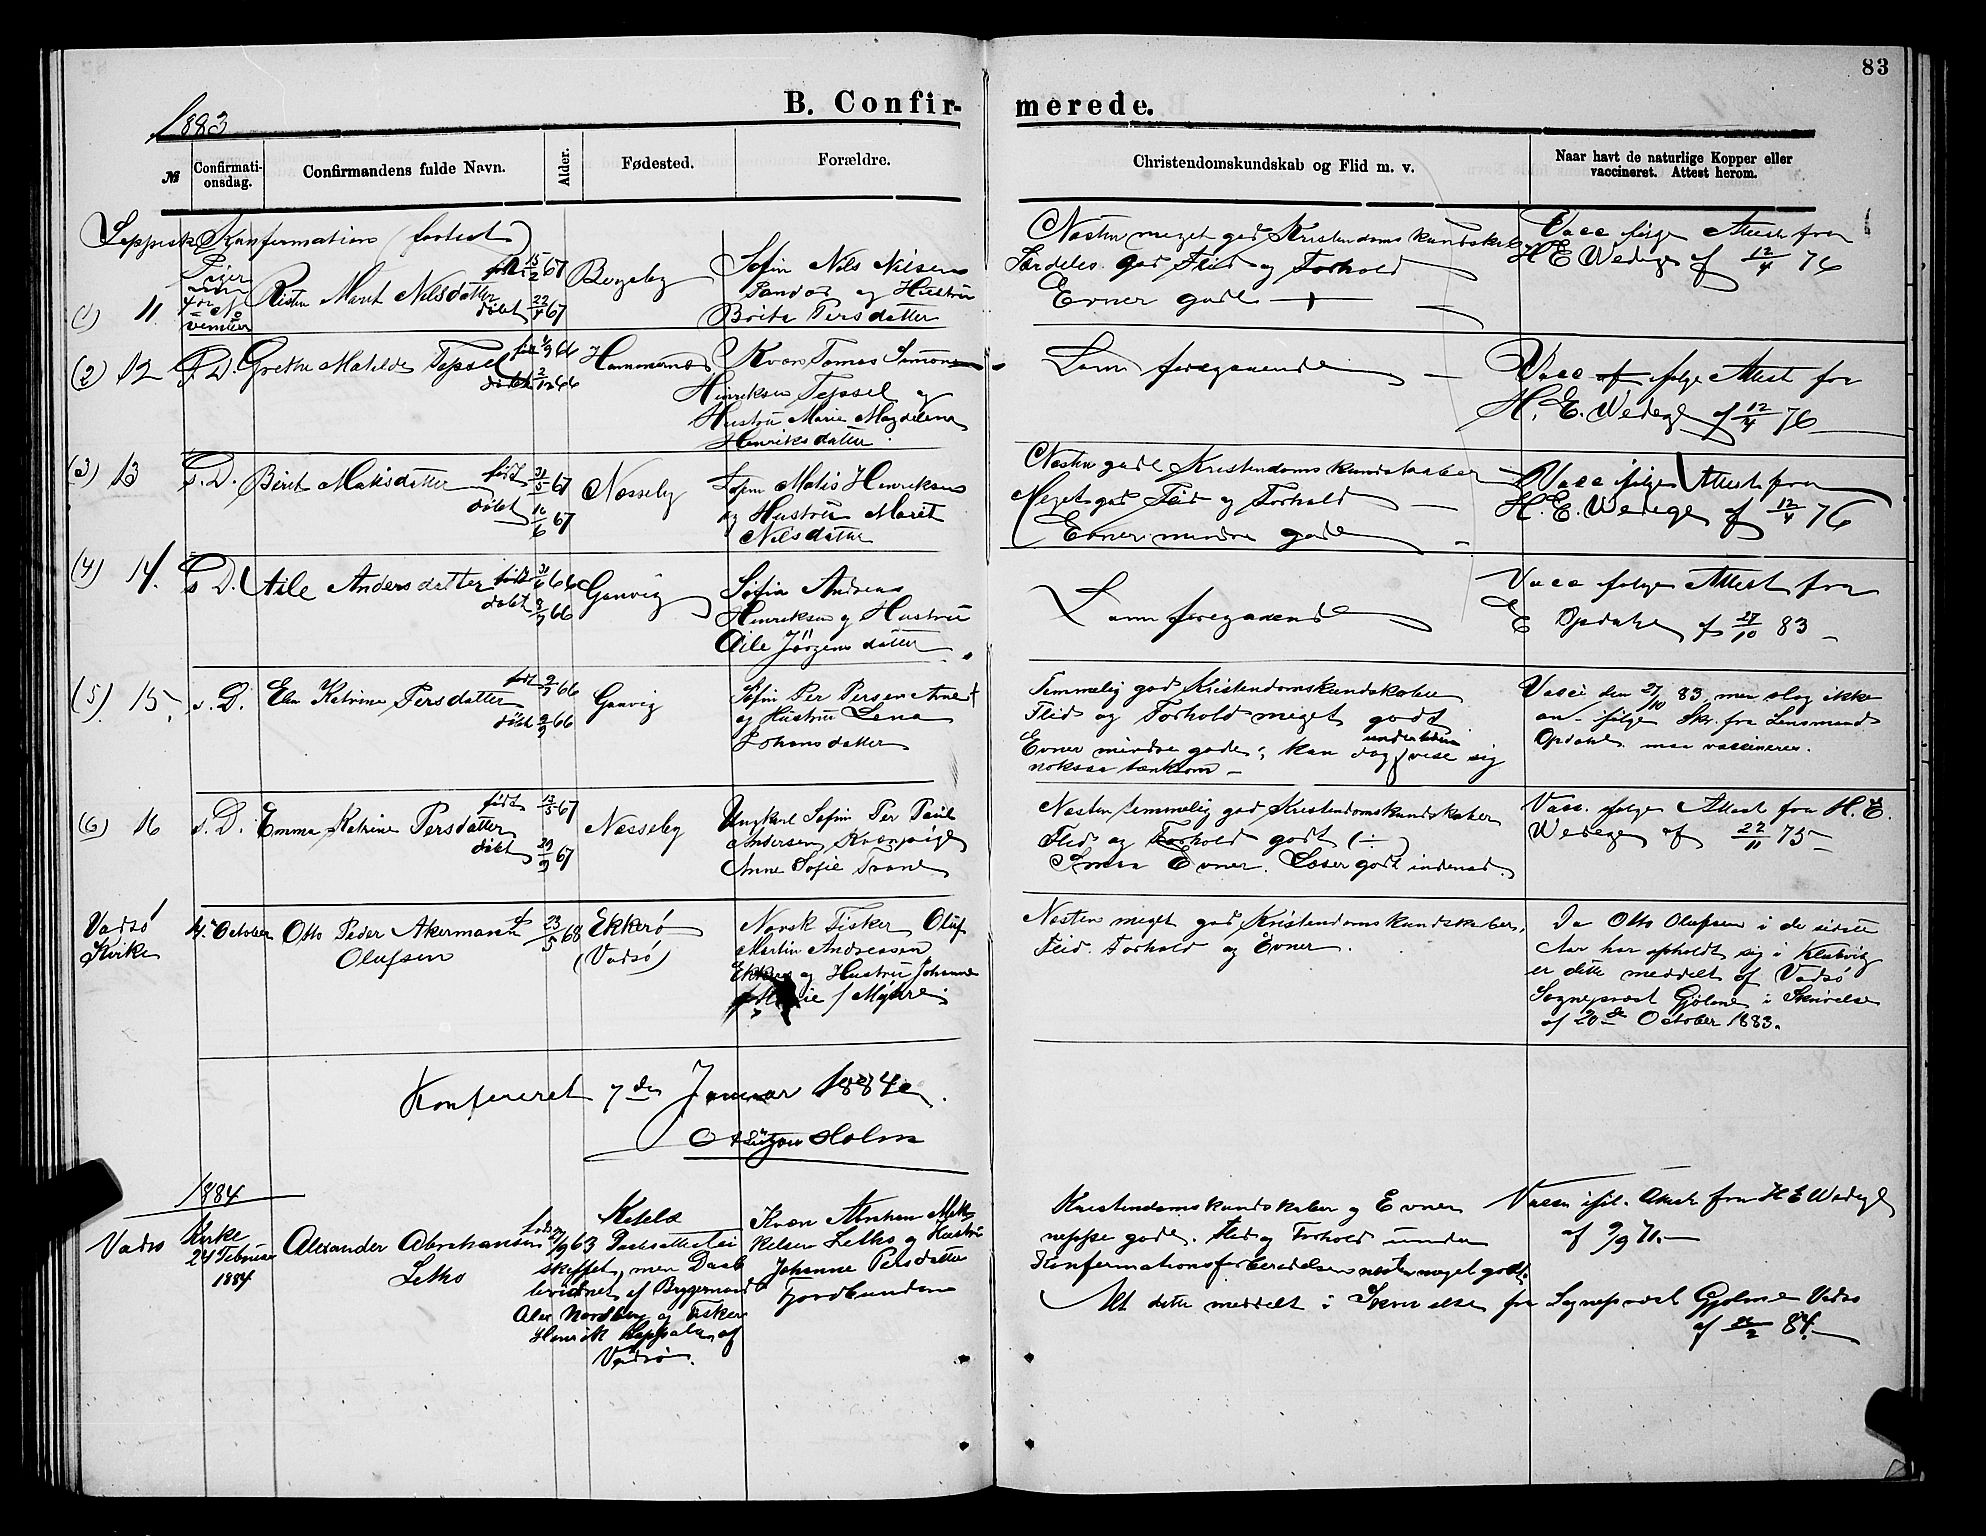 83
B. Confirmerede.
1883
№ Confirmationsdag. Confirmandens fulde Navn. Alder. Fødested. Forældre. Christendomskundskab og Flid m. v. Naar havt de naturlige Kopper eller vaccineret. Attest herom.
Lappisk Konfirmation (fortsat)
(1) 11. 4de November
Risten Marit Nilsdatter født 15/2 67 døbt 22/4 67
Bergeby
Søfin Nils Nilsen
og Hustru
Brita Persdatter
Næsten meget god Kristendomskundskab
Særdeles god Flid og Forhold
Evner gode +
Vacc. ifølge Attest fra
H E Wedege af 12/4 76
(2) 12 s. D. Grethe Matilde Tapsel født 1/9 66 døbt 2/12 66
Hammernes
Kvæn Tomas Simon
Henriksen Tapsel og
Hustru Marie Magdelena
Henriksdatter.
Som foregaaende
Vacc ifølge Attest fra
H. E. Wedege af 12/4 76
(3) 13 s. D. Berit Matisdatter født 31/5 67 døbt 16/6 67
Nesseby
Søfin Matis Henriksen
og Hustru Marit
Nilsdatter
Næsten gode Kristendomskundskaber
Meget god Flid og Forhold
Evner mindre gode
Vacc ifølge Attest fra
H. E. Wedege af 12/4 76
(4) 14. s D. Aile Andersdatter født 66 døbt 66
Ganvig
Søfin Anders
Henriksen og Hustru
Aile Jörgensdatter
Som foregaaende
Vacc ifølge Attest fra
E Opdahl af 27/10 83
(5) 15. s. D. Elen Katrine Persdatter født 66 døbt 66
Ganvig
Søfin Per Persen
og Hustru Lena
Johansdatter
Temmelig god Kristendomskundskaber
Flid og Forhold meget godt
Evner mindre gode; kan dog undertiden vise sig
noksaa tænksom
Vacci den 27/10 83 men slog ikke
an ifølge Skr. fra Lensmand
Opdahl maa vaccineres.
(6) 16 s. D. Emma Katrine Persdatter født 13/5 67 døbt 29/9 67
Nesseby
Ungkarl Søfin Per Paul
Andersen Kvænpige
Anne Sofie Trane
Næsten temmelig god Kristendomskundskaber
Flid og Forhold godt (÷)
Smaa Evner. Læser godt indenad.
Vacc. ifølge Attest fra H. E.
Wedege af 22/11 75
Vadsø Kirke 14. October Otto Peder Akermandt
Olufsen
23/5 68
Ekkerö
(Vadsø)
Norsk Fisker Oluf
Martin Andreassen
Ekkerø og Hustru Johanna
Marie f Myhre.
Næsten meget god Kristendomskundskaber,
Flid. Forhold og Evner.
Da Otto Olufsen i de sidste
Aar har opholdt sig i Klubvig
er dette meddelt af Vadsø
Sogneprest Gjølme i Skrivelse
af 20de October 1883.
Konfereret 7de Januar 1884
Astrup Holm
1884
Vadsø Kirke
24 Februar
1884
Alexander Abrahamsen
Letto
født 27/9 63
Dåbsattest ei
skaffet, men Daab
bevidnet af Bygermand
Alex Nordberg og Fisker
Henrik Seppala af
Vadsø.
Kvæn Abraham
Letto og Hustru
Johanne Persdatter
Fjordbunden
Kristendomskundskaber og Evner
neppe gode. Flid og Forhold under
Konfirmationsforberedelsen næsten meget godt.
Alt dette meddelt i Skrivelse fra Sogneprest Gjølme Vadsø
af 26/2 84.
Vaccin iføl. Attest fra H E Wedege
af 9/9 71.